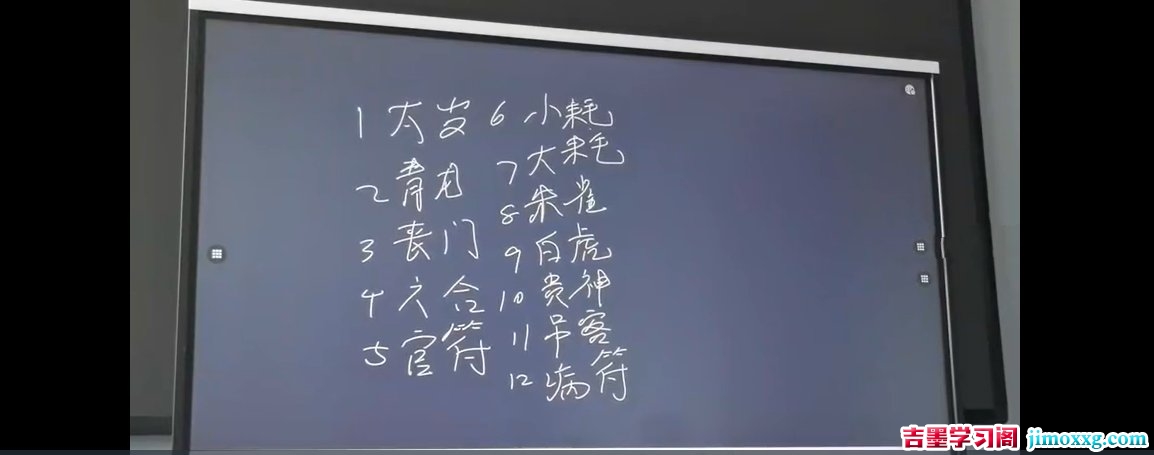 1 太岁
2 青龙
3 丧门
4 六合
5 官符
6 小耗
7 大耗
8 朱雀
9 白虎
10 贵神
11 吊客
12 病符
吉墨学习阁 jimoxxg.com